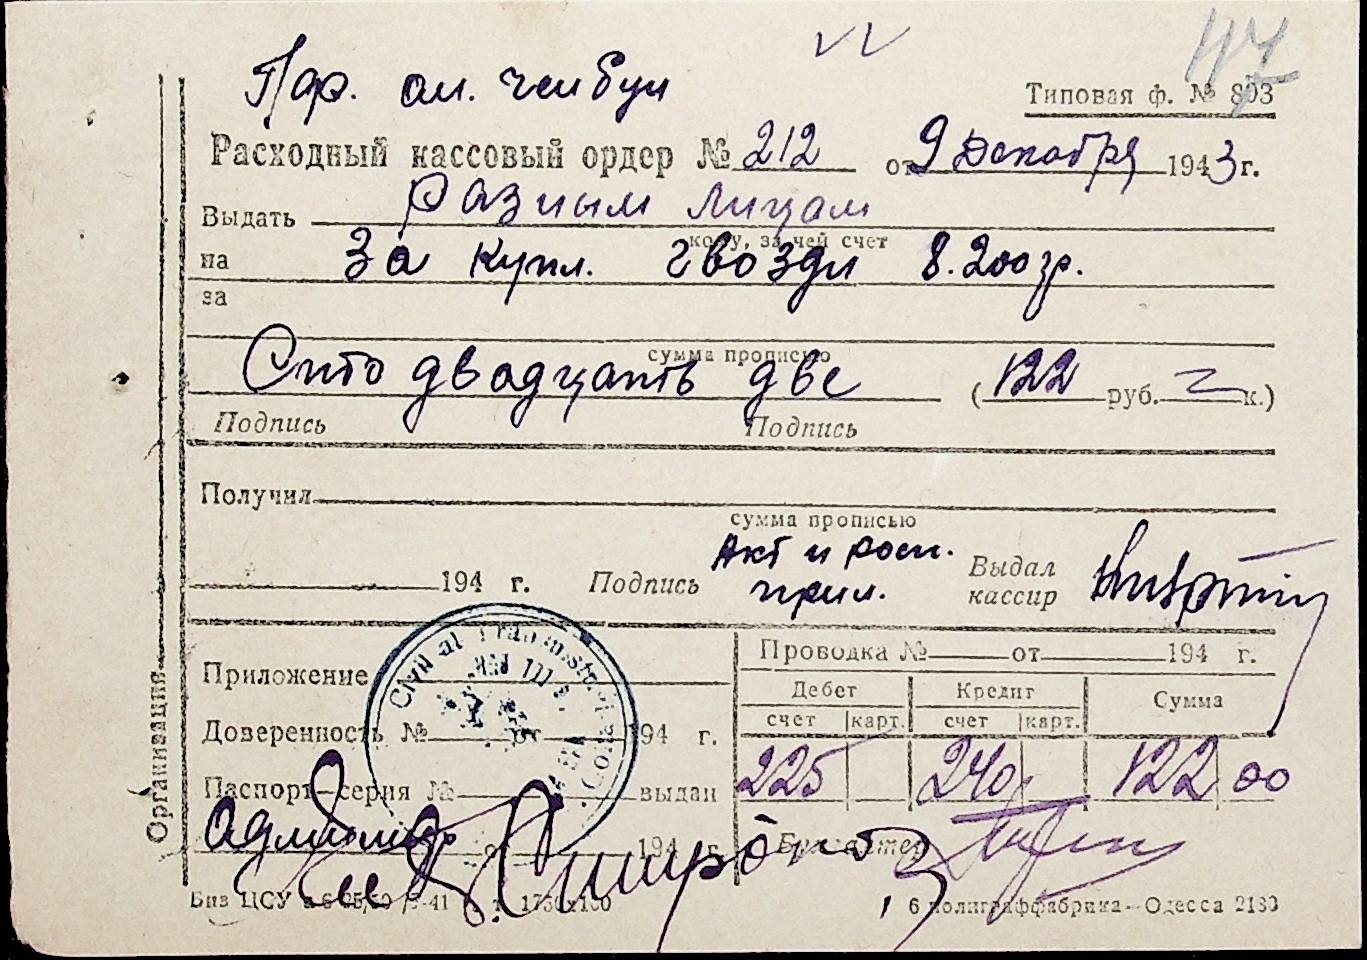 147
Пдр. ам.
Типовая ф. № 803
Расходный кассовый ордер № 212 от 9 Декабря 1943 г.
Выдать Разным лицам
кому, за чей счет
на За купл. гвозди 8.200 гр.
за
сумма прописью
Сто двадцать две (122 руб. к.)
Подпись Подпись
Получил
сумма прописью
194 г. Подпись Акт и росп. прил. Выдал кассир
Организация
Приложение
Доверенность № от 194 г.
Паспорт серия № выдан
194 г.
Проводка № от 194 г.
Дебет Кредит Сумма
счет карт. счет карт.
225 240 122 00
Бухгалтер
6 полиграффабрика—Одесса 2180